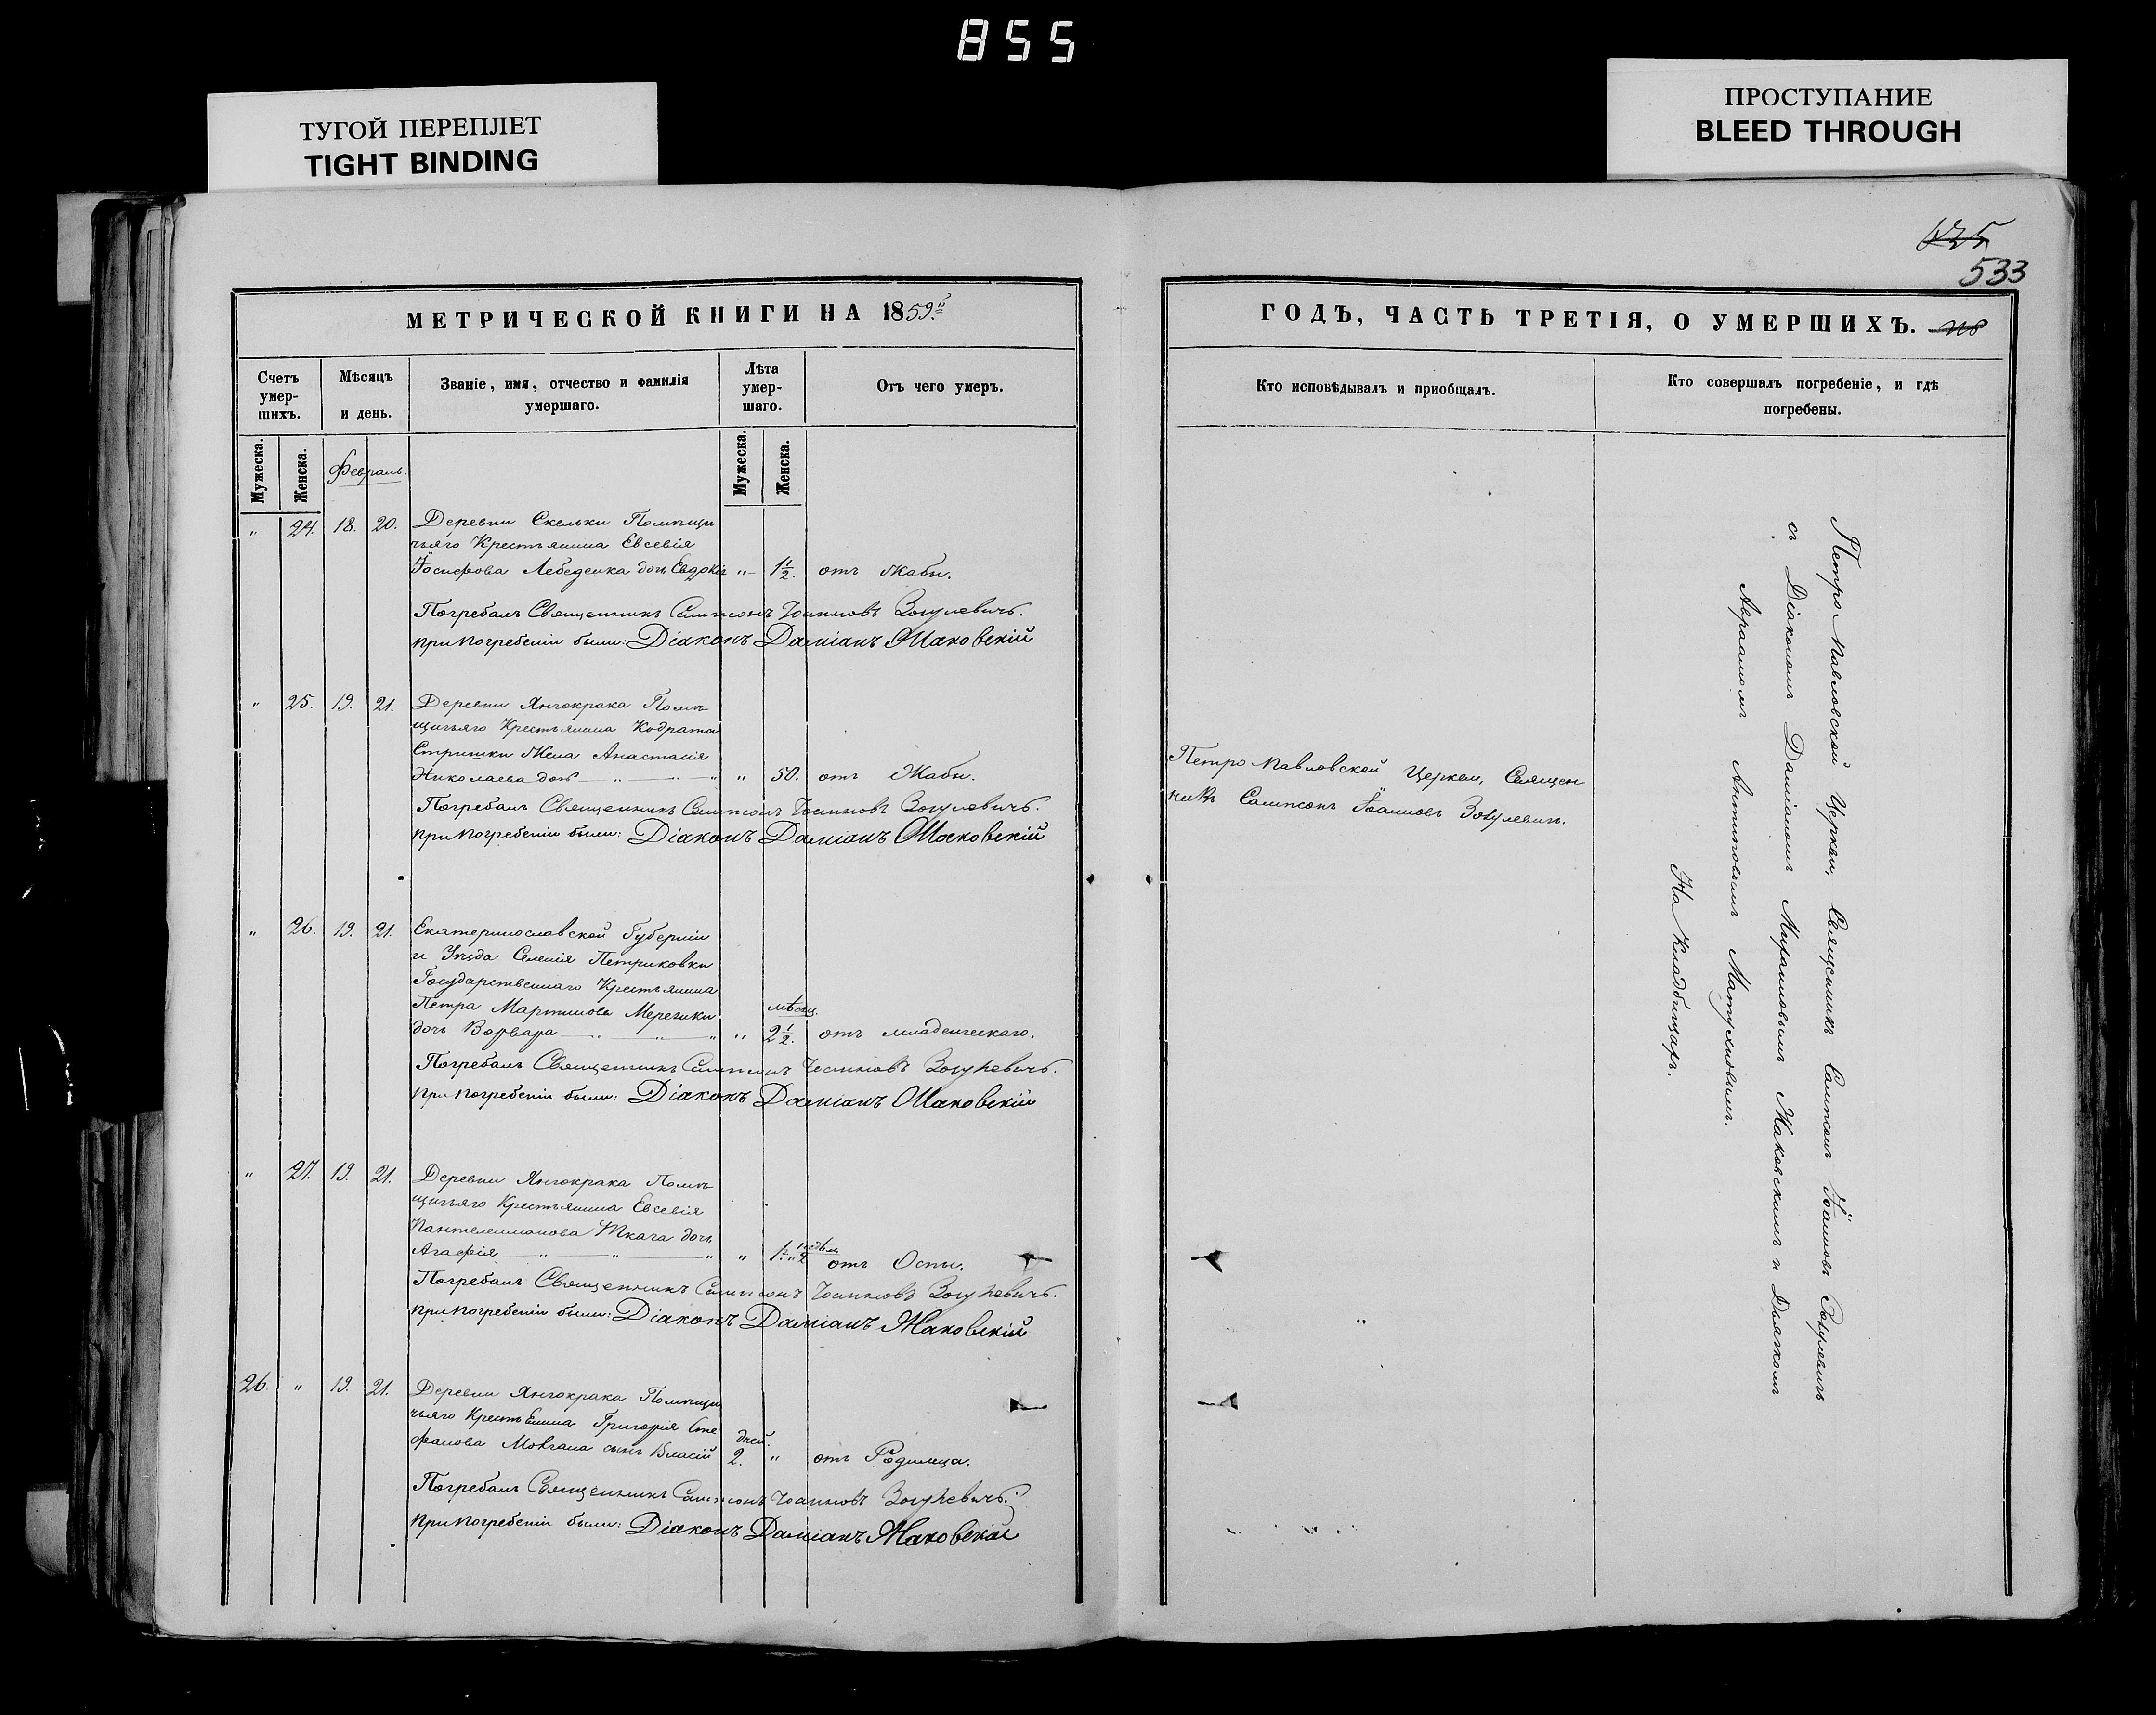 855
ТУГОЙ ПЕРЕПЛЕТ
TIGHT BINDING
ПРОСТУПАНИЕ
BLEED THROUGH
533
МЕТРИЧЕСКОЙ КНИГИ НА 1859й
Счетъ умер-шихъ.
Мѣсяцъ и день.
Званіе, имя, отчество и фамилія умершаго.
Лѣта умер-шаго.
Отъ чего умеръ.
Мужеска.
Женска.
Февраль.
Мужеска.
Женска.
" 24. 18. 20. Деревни Скельки Помѣщи
чьяго Крестьянина Евсевія
Іосифова Лебеденка дочь Евдокія " 1 1/2. отъ Жабы.
Погребалъ Священникъ Сампсонъ Іоанновъ Зогулевичъ.
При погребеніи были: Діаконъ Даміанъ Маковскій
" 25. 19. 21. Деревни Янчокрака Помѣ-
щичьяго Крестьянина Кодрата
Стришки Жена Анастасія
Николаева дочь " " " 50. отъ Жабы.
Погребалъ Священникъ Сампсонъ Іоанновъ Зогулевичъ.
При погребеніи были: Діаконъ Даміанъ Маковскій
" 26. 19. 21. Екатеринославской Губерніи
и Уѣзда Селенія Петриковки
Государственнаго Крестьянина
Петра Мартинова Мережки мѣсяц.
дочь Варвара " " " " 2 1/2. отъ младенческаго.
Погребалъ Священникъ Сампсонъ Іоанновъ Зогулевичъ.
При погребеніи были: Діаконъ Даміанъ Маковскій
" 27. 19. 21. Деревни Янчокрака Помѣ-
щичьяго Крестьянина Евсевія
Пантелеимонова Ткача дочь
Агафія " " " " отъ Оспы.
Погребалъ Священникъ Сампсонъ Іоанновъ Зогулевичъ.
При погребеніи были: Діаконъ Даміанъ Маковскій
26. " 19. 21. Деревни Янчокрака Помѣщи
чьяго Крестьянина Григорія Сте дней.
фанова Мовчана сынъ Власій 2. " отъ Родимца.
Погребалъ Священникъ Сампсонъ Іоанновъ Зогулевичъ.
При погребеніи были: Діаконъ Даміанъ Маковскій
ГОДЪ, ЧАСТЬ ТРЕТІЯ, О УМЕРШИХЪ.
Кто исповѣдывалъ и пріобщалъ.
Кто совершалъ погребеніе, и гдѣ
погребены.
Петро Павловской Церкви, Священ
никъ Сампсонъ Іоанновъ Зогулевичъ.
Петро Павловской Церкви, Священникъ Сампсонъ Іоанновъ Зогулевичъ
съ Діакономъ Даміаномъ Михаиловымъ Маковскимъ и Дьякомъ
Авраамомъ Антиповымъ Матухновымъ.
На Кладбищахъ.